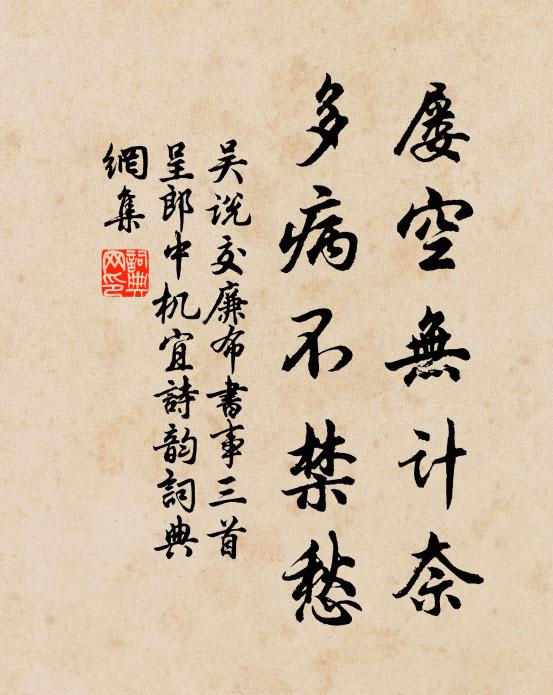 屡空無计奈
多病不禁愁
吴说交廉布書事三首
呈郎中机宜詩韵詞典
網集
詞典
网印